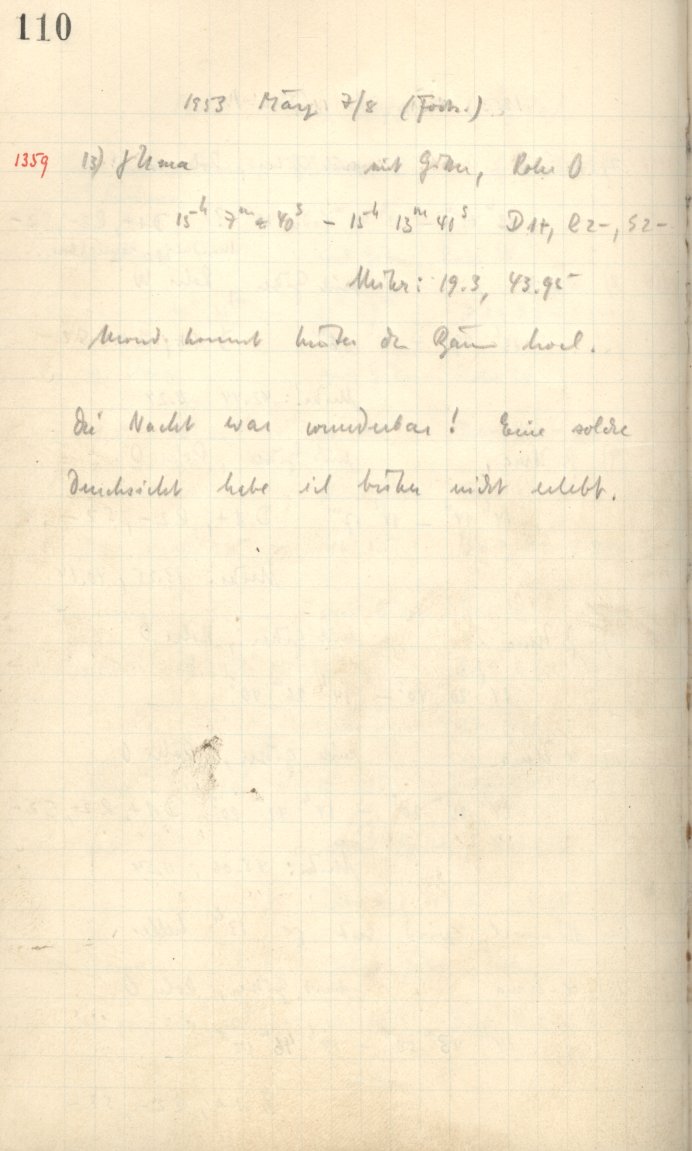 110
1953 März 7/8 (Forts.)
1359 13) γ Uma mit Gitter, Rohr O
15h 7m 40s – 15h 13m 41s D1+, R2–, S2–
Mikr: 19.3, 43.95
Mond kommt hinter den Bäumen hoch.
Die Nacht war wunderbar! Eine solche
Durchsicht habe ich bisher nicht erlebt.